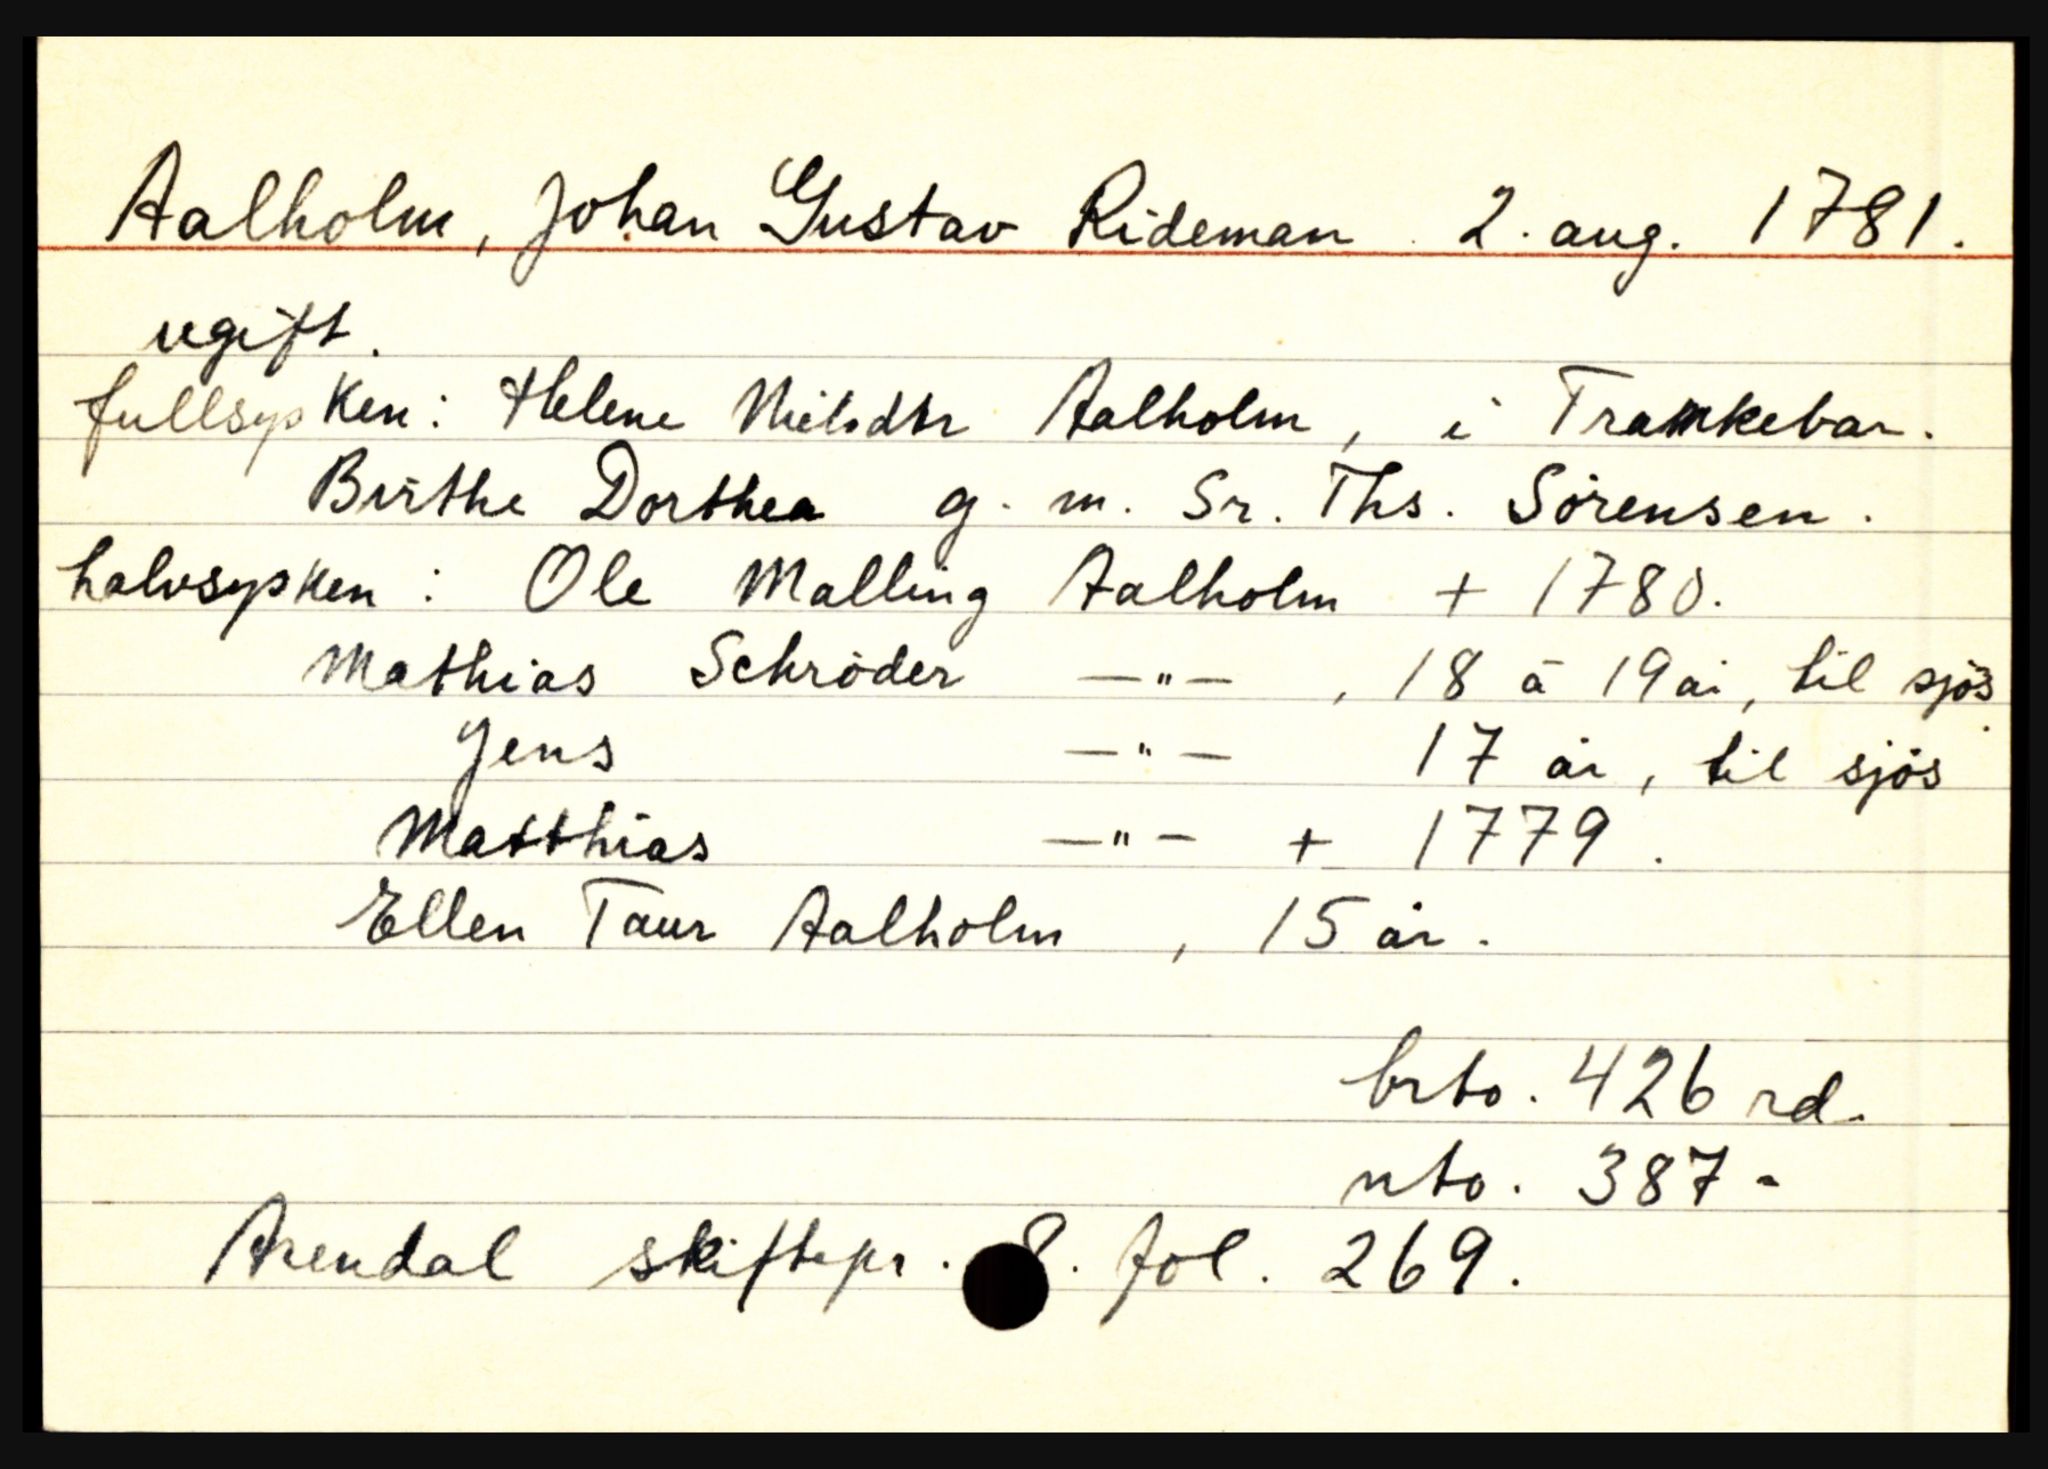 Aalholm, Johan Gustav Rideman 2. aug. 1781.
ugift.
fullsysken: Helene Nilsdtr Aalholm, i Trankebar.
Birthe Dorthea g. m. Sr. Ths. Sörensen.
halvsysken: Ole Malling Aalholm + 1780.
Mathias Schröder —"— , 18 à 19 år, til sjös.
Jens —"— 17 år, til sjös
Matthias —"— + 1779.
Ellen Taur Aalholm, 15 år.
brto. 426 rd.
nto. 387 -
Arendal skiftepr. 8. fol. 269.